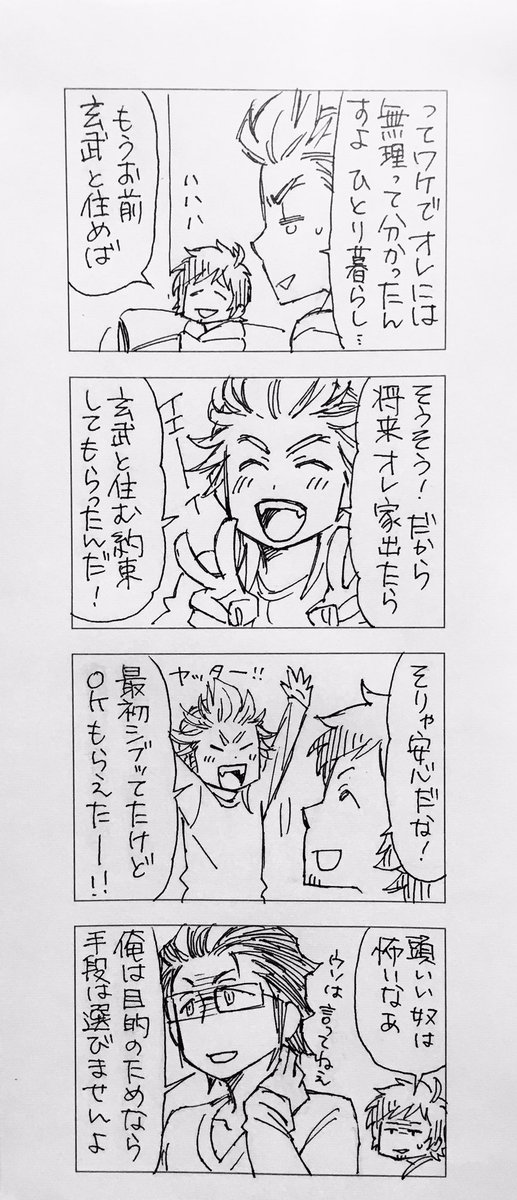 ってワケでオレには
無理って分かったん
すよ ひとり暮らし…
ハハハ
もうお前
玄武と住めば
そうそう！だから
将来オレ家出たら
イエーイ
玄武と住む約束
してもらったんだ！
そりゃ安心だな！
ヤッター!!
最初シブッてたけど
OKもらえたー!!
頭いい奴は
怖いなぁ
ウソは言ってねぇ
俺は目的のためなら
手段は選びませんよ